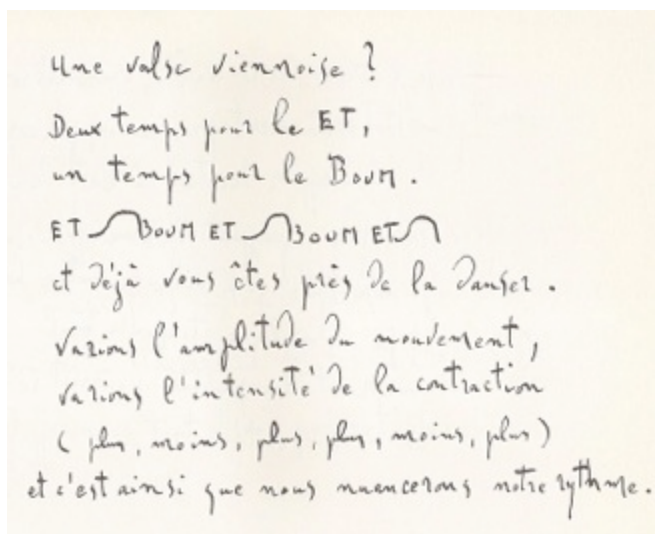 Une valse viennoise ?
Deux temps pour le ET,
un temps pour le BOUM.
ET BOUM ET BOUM ET
et déjà vous êtes près de la danser.
Varions l'amplitude du mouvement,
varions l'intensité de la contraction
( plus, moins, plus, plus, moins, plus )
et c'est ainsi que nous nuancerons notre rythme.